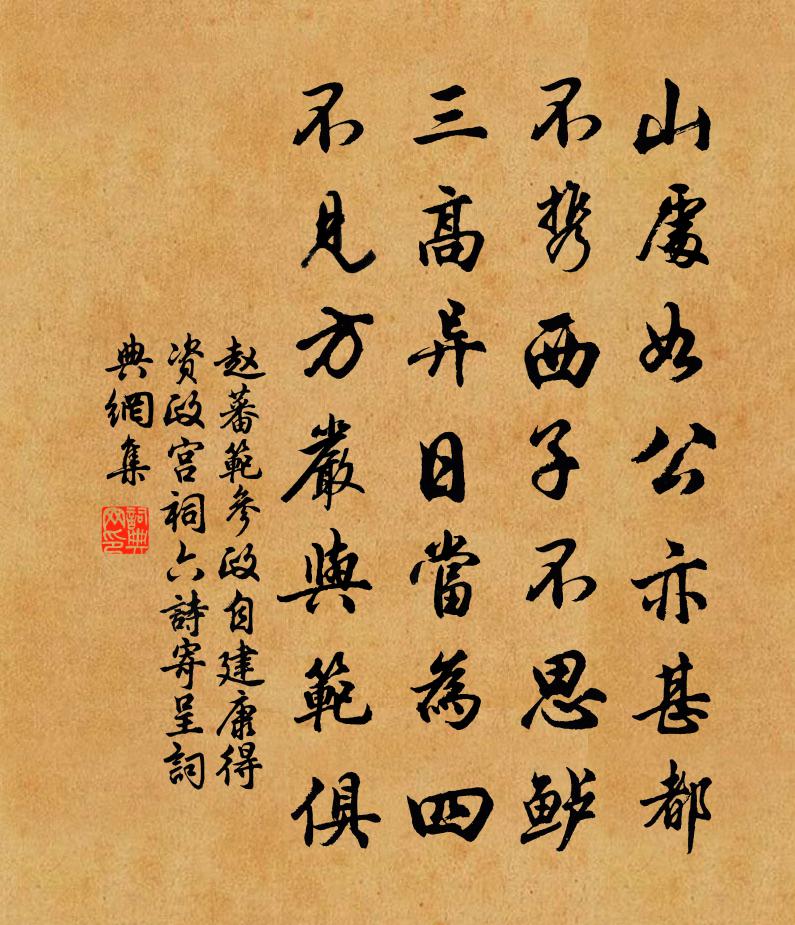 山處如公亦甚都
不携西子不思鲈
三高异日當為四
不見方嚴與範俱
赵蕃範參政自建康得
资政宫祠六詩寄呈詞
典網集
詞典网印